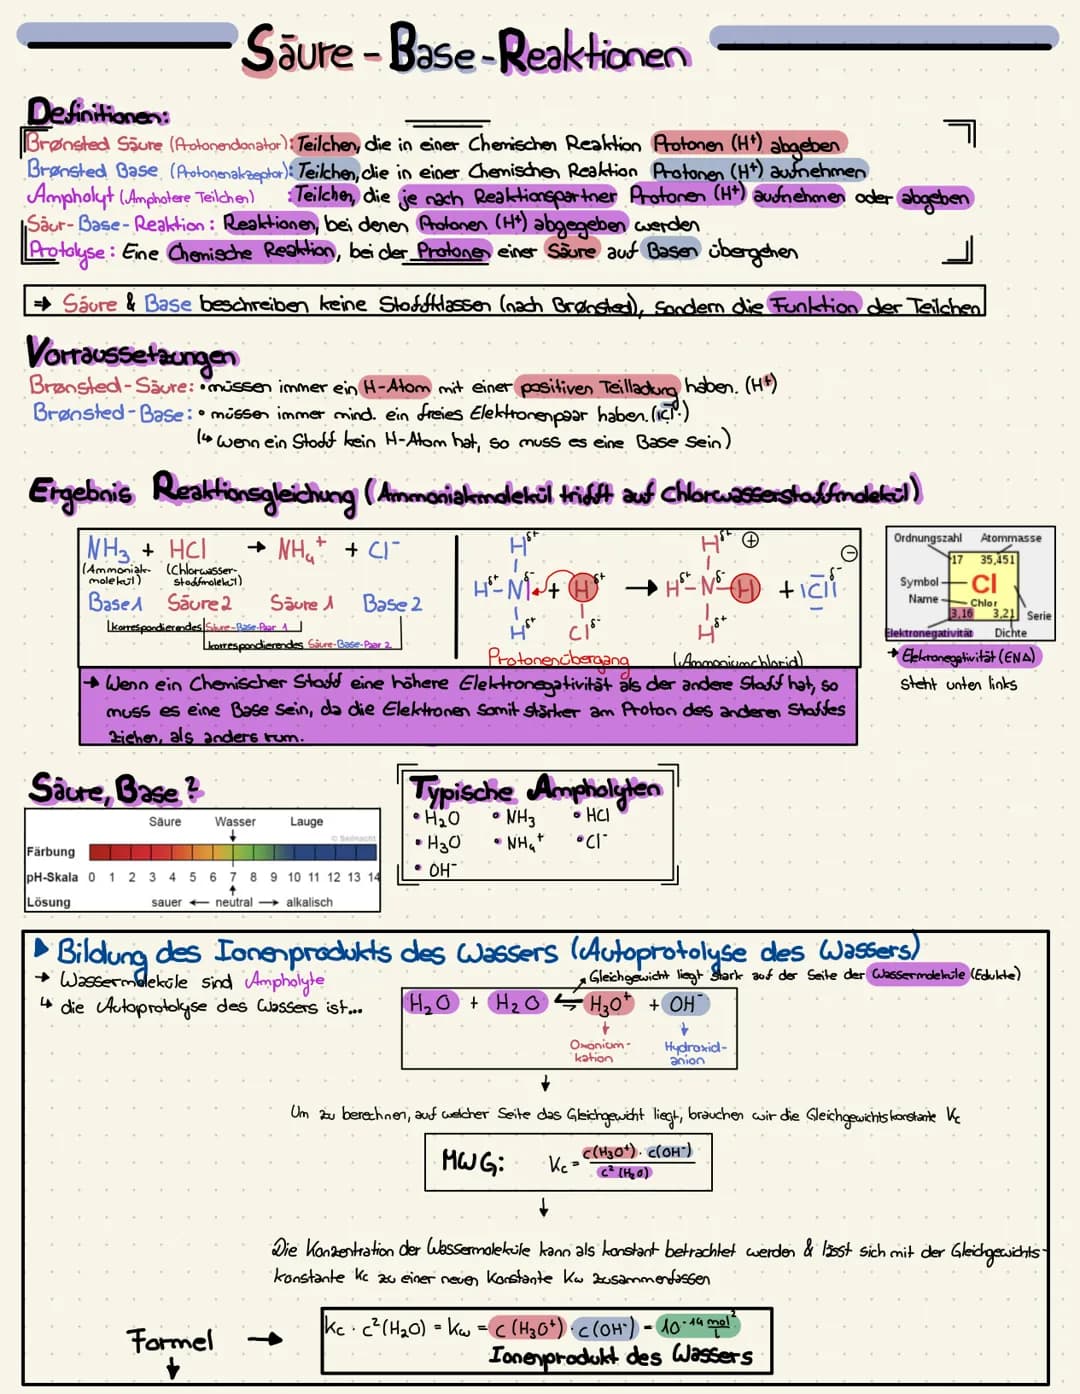 Säure-Base-Reaktionen
Definitionen:
Brønsted Säure (Protonendonator): Teilchen, die in einer Chemischen Reaktion Protonen (H⁺) abgeben
Brønsted Base (Protonenakzeptor): Teilchen, die in einer Chemischen Reaktion Protonen (H⁺) aufnehmen
Ampholyt (Amphotere Teilchen) : Teilchen, die je nach Reaktionspartner Protonen (H⁺) aufnehmen oder abgeben
Säur-Base-Reaktion: Reaktionen, bei denen Protonen (H⁺) abgegeben werden
Protolyse: Eine Chemische Reaktion, bei der Protonen einer Säure auf Basen übergehen
→ Säure & Base beschreiben keine Stoffklassen (nach Brønsted), sondern die Funktion der Teilchen
Vorraussetzungen
Brønsted-Säure: • müssen immer ein H-Atom mit einer positiven Teilladung haben. (H⁺)
Brønsted-Base: • müssen immer mind. ein freies Elektronenpaar haben.
(↳ wenn ein Stoff kein H-Atom hat, so muss es eine Base sein)
Ergebnis Reaktionsgleichung (Ammoniakmolekül trifft auf Chlorwasserstoffmolekül)
NH₃ + HCl → NH₄⁺ + Cl⁻
(Ammoniak-molekül) (Chlorwasser-stoffmolekül)
Base 1 Säure 2 Säure 1 Base 2
korrespondierendes Säure-Base-Paar 1
korrespondierendes Säure-Base-Paar 2
Hδ⁺ Hδ⁺ ⊕ ⊖
Hδ⁺-Nδ⁻| + Hδ⁺ → Hδ⁺-Nδ⁻-H + |Cl|δ⁻
Hδ⁺ Clδ⁻ Hδ⁺
Protonenübergang (Ammoniumchlorid)
Ordnungszahl Atommasse
17 35,451
Symbol Cl
Name Chlor
3,16 3,21 Serie
Elektronegativität Dichte
→ Elektronegativität (ENΔ)
steht unten links
→ Wenn ein Chemischer Stoff eine höhere Elektronegativität als der andere Stoff hat, so
muss es eine Base sein, da die Elektronen somit stärker am Proton des anderen Stoffes
ziehen, als anders rum.
Säure, Base?
Säure Wasser Lauge
© Seilnacht
Färbung
pH-Skala 0 1 2 3 4 5 6 7 8 9 10 11 12 13 14
Lösung sauer ← neutral → alkalisch
Typische Ampholyten
• H₂O • NH₃ • HCl
• H₃O • NH₄⁺ • Cl⁻
• OH⁻
▶ Bildung des Ionenprodukts des Wassers (Autoprotolyse des Wassers)
→ Wassermoleküle sind Ampholyte
↳ die Autoprotolyse des Wassers ist...
Gleichgewicht liegt stark auf der Seite der Wassermoleküle (Edukte)
H₂O + H₂O ⇌ H₃O⁺ + OH⁻
Oxonium-kation Hydroxid-anion
Um zu berechnen, auf welcher Seite das Gleichgewicht liegt, brauchen wir die Gleichgewichtskonstante Kc
MWG: Kc = c(H₃O⁺) · c(OH⁻)
c²(H₂O)
Die Konzentration der Wassermoleküle kann als konstant betrachtet werden & lässt sich mit der Gleichgewichts-
konstante Kc zu einer neuen Konstante Kw zusammenfassen
Formel → Kc · c²(H₂O) = Kw = c(H₃O⁺) · c(OH⁻) = 10⁻¹⁴ mol²/L
Ionenprodukt des Wassers